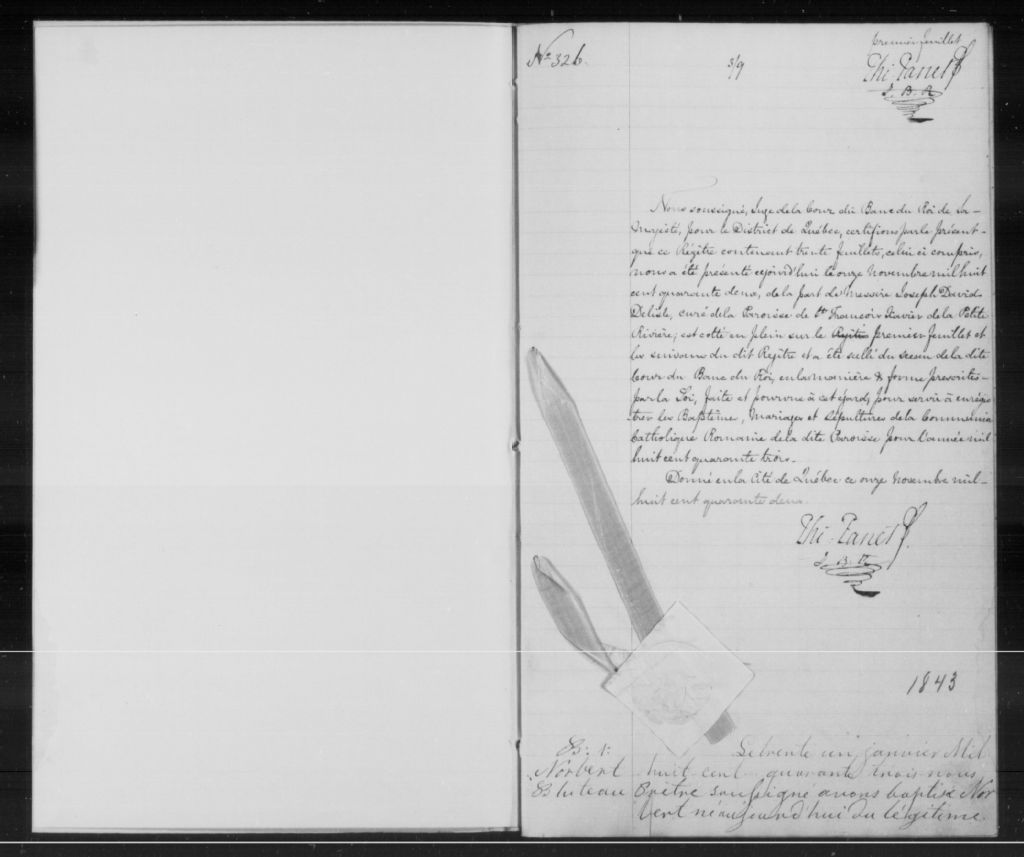 No 326.
3/9
premier feuillet
Phi. Panet
J. B. R.
Nous soussigné, Juge de la Cour du Banc du Roi de Sa
Majesté, pour le District de Québec, certifions par le présent
que ce Régître contenant trente feuillets, celui ci compris,
nous a été présenté cejourd'hui le onze Novembre mil huit
cent quarante deux, de la part de Messire Joseph David
Delisle, curé de la Paroisse de St. Francois Xavier de la Petite
Rivière; est cotté en plein sur le premier feuillet et
les suivans du dit Regître et a été scellé du sceau de la dite
Cour du Banc du Roi, en la manière & forme prescrites
par la Loi, faite et pourvue à cet égard, pour servir à enrégis
trer les Baptême, Mariages et Sépultures de la Communion
Catholique Romaine de la dite Paroisse pour l'année mil
huit cent quarante trois.
Donné en la Cité de Québec ce onze Novembre mil
huit cent quarante deux.
Phi. Panet
J. B. R.
1843
B: 1:
Norbert
Bluteau
Le trente un janvier Mil
huit cent quarante trois nous
Prêtre soussigné avons baptisé Nor
bert né aujourd'hui du légitime